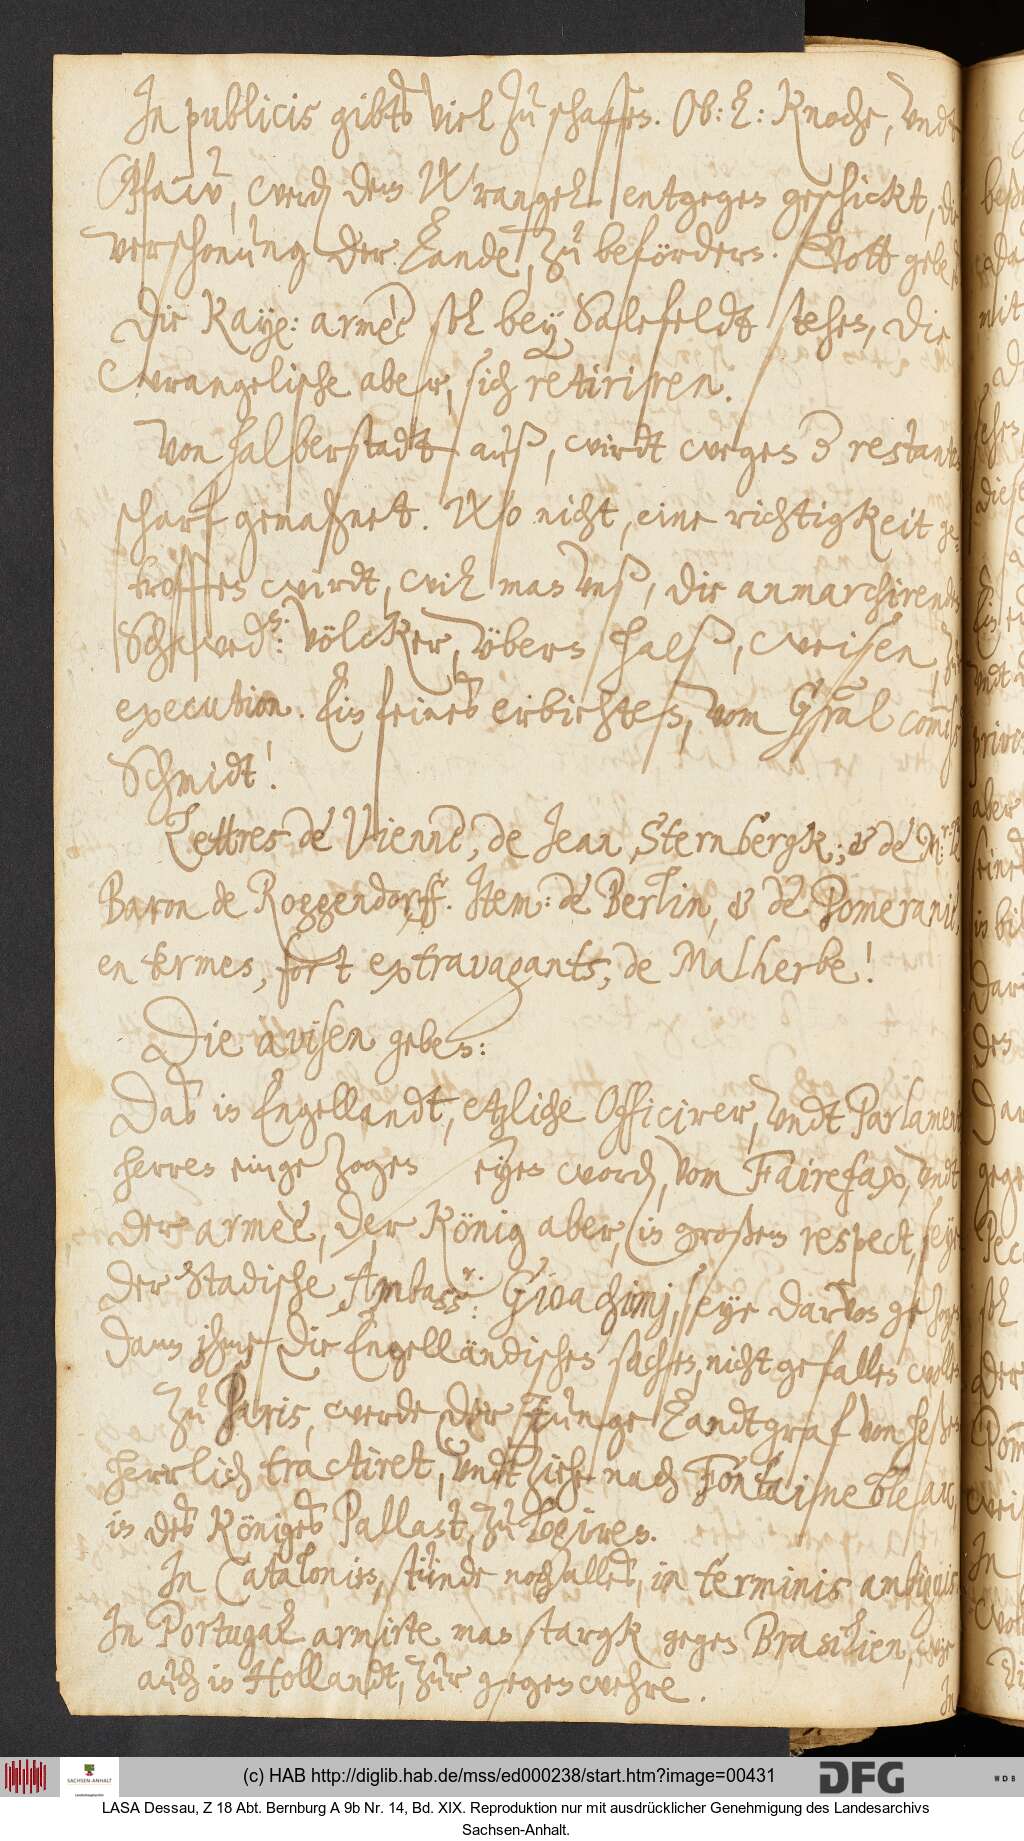 In publicis gibts viel zu schaffen. Ob: L: Knoche, undt
Pfaw, werden dem Wrangel entgegen geschickt, die
verschonung der Lande, zu befördern. Gott gebe
Die Kayß: armèe soll bey Salefeldt stehen, die
wrangelische aber, sich retiriren.
Von Halberstadt auß, wirdt wegen restanten
scharf gemahnet. Wo nicht, eine richtigkeit ge-
troffen wirdt, will man unß, die anmarchirenden
Schwed: Völcker, übern halß, weisen, zur
execution. Ein feines erbiehten, vom G̃ral com̃iß:
Schmidt!
Lettres de Vienne, de Jean Sternbergk; & de Mr: le
Baron de Roggendorff. Item: de Berlin, & de Pomeranie,
en termes, fort extravagants, de Malherbe!
Die avisen geben:
Das in Engellandt, etzliche Officirer, undt Parlament
herren eingezogen seyen worden, vom Fairefax, undt
der armèe, der König aber, in großem respect, seye
der Stadische Ambassr: Gioachimj, seye darvon gezogen
dann ihme die Engelländischen sachen, nicht gefallen wollen
Zu Paris, werde der junge Landtgraf von Heßen
herrlich tractiret, undt ziehe nach Fontaine bleau,
in des Königes Pallast, zu logiren.
In Catalonien, stünde noch alles, in terminis ambiguis
In Portugall armirte man stargk gegen Brasilien, wie
auch in Hollandt, zur gegenwehre.
In
(c) HAB http://diglib.hab.de/mss/ed000238/start.htm?image=00431
SACHSEN-ANHALT
DFG
WDB
LASA Dessau, Z 18 Abt. Bernburg A 9b Nr. 14, Bd. XIX. Reproduktion nur mit ausdrücklicher Genehmigung des Landesarchivs
Sachsen-Anhalt.